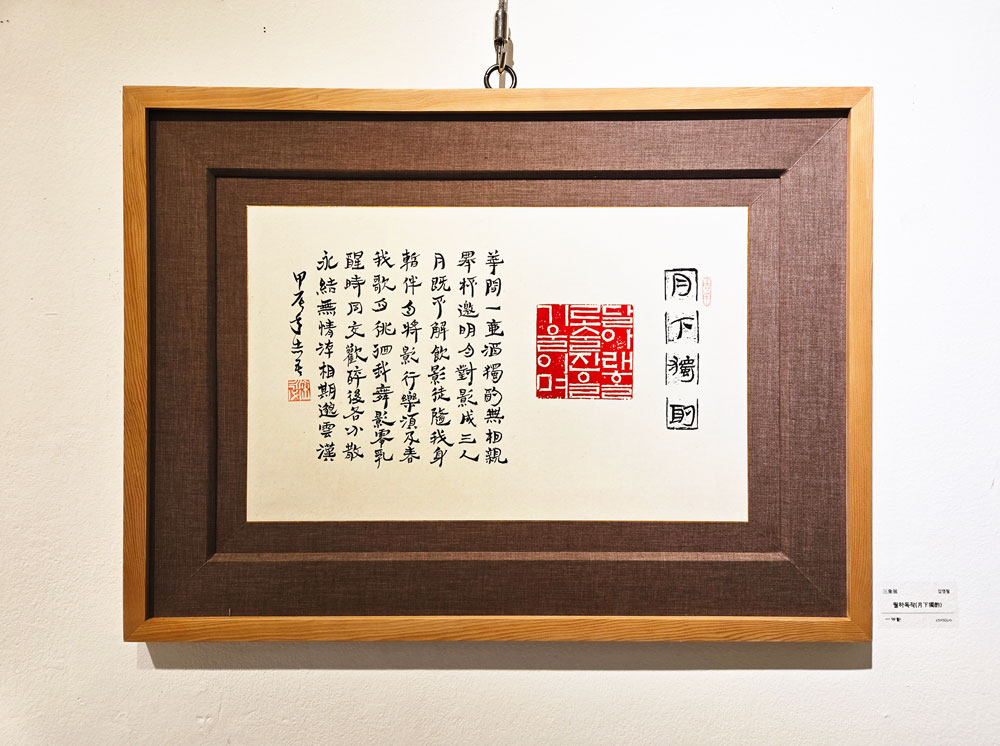 月下獨酌
달아래홀
로술잔을
기울이며
華間一壺酒獨酌無相親
擧杯邀明月對影成三人
月既不解飮影徒隨我身
暫伴月將影行樂須及春
我歌月徘徊我舞影零亂
醒時同交歡醉後各分散
永結無情游相期邈雲漢
甲辰年
월하독작(月下獨酌)